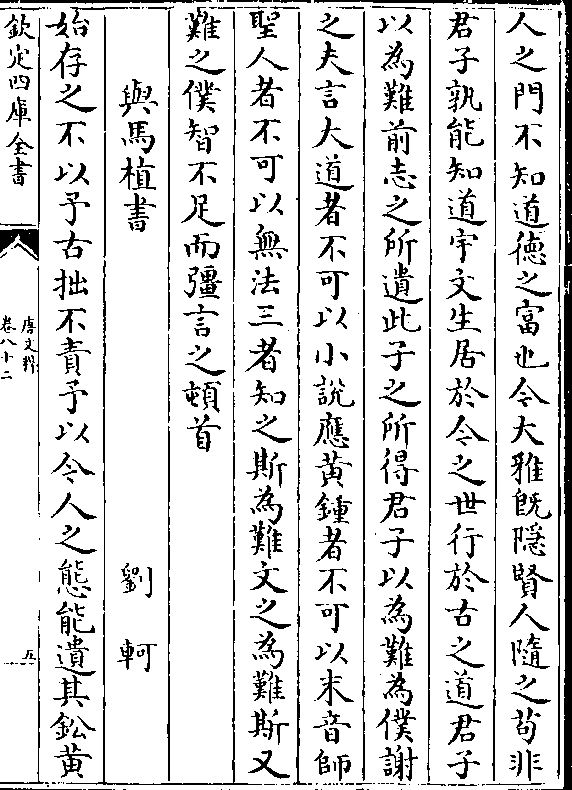 人之門不知道德之富也今大雅既隱賢人隨之苟非
君子孰能知道宇文生居於今之世行於古之道君子
以為難前志之所遺此子之所得君子以為難為僕謝
之夫言大道者不可以小說應黃鍾者不可以末音師
聖人者不可以無法三者知之斯為難文之為難斯又
難之僕智不足而彊言之頓首
與馬植書 劉軻
始存之不以予古拙不責予以今人之態能遺其鈆黃
欽定四庫全書
唐文粹
卷八十二
五